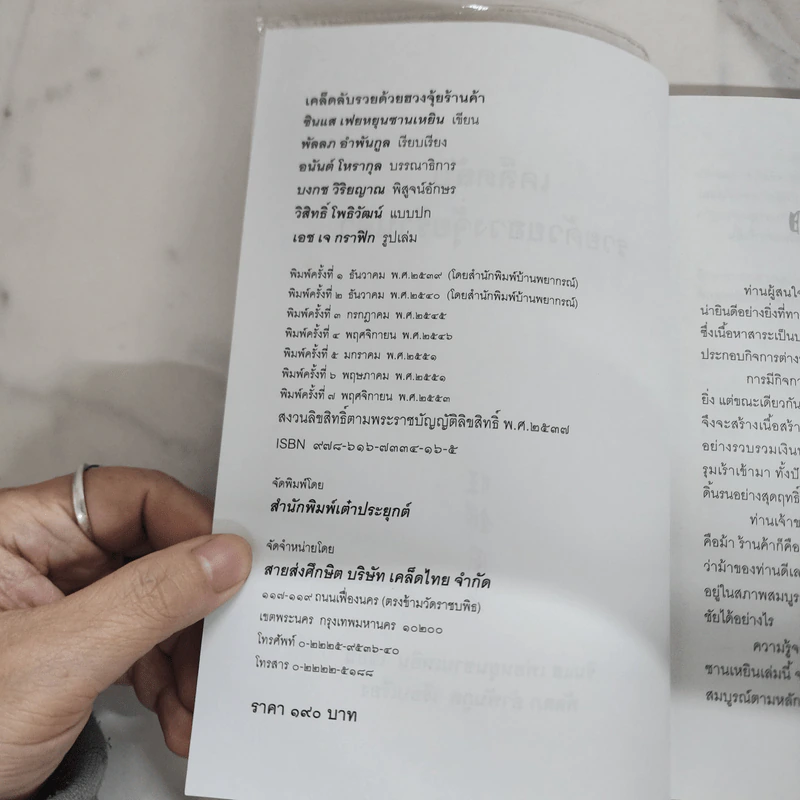 เคล็ดลับรวยด้วยฮวงจุ้ยร้านค้า
ซินแส เฟยหยุนซานเหยิน เขียน
พัลลภ อำพันกูล เรียบเรียง
อนันต์ โหรากุล บรรณาธิการ
บงกช วิริยญาณ พิสูจน์อักษร
วิสิทธิ์ โพธิวัฒน์ แบบปก
เอช เจ กราฟิก รูปเล่ม
พิมพ์ครั้งที่ ๑ ธันวาคม พ.ศ.๒๕๓๙ (โดยสำนักพิมพ์บ้านพยากรณ์)
พิมพ์ครั้งที่ ๒ ธันวาคม พ.ศ.๒๕๔๐ (โดยสำนักพิมพ์บ้านพยากรณ์)
พิมพ์ครั้งที่ ๓ กรกฎาคม พ.ศ.๒๕๔๕
พิมพ์ครั้งที่ ๔ พฤศจิกายน พ.ศ.๒๕๔๖
พิมพ์ครั้งที่ ๕ มกราคม พ.ศ.๒๕๕๑
พิมพ์ครั้งที่ ๖ พฤษภาคม พ.ศ.๒๕๕๑
พิมพ์ครั้งที่ ๗ พฤศจิกายน พ.ศ.๒๕๕๓
สงวนลิขสิทธิ์ตามพระราชบัญญัติลิขสิทธิ์ พ.ศ.๒๕๓๗
ISBN ๙๗๘-๖๑๖-๗๓๓๔-๑๖-๕
จัดพิมพ์โดย
สำนักพิมพ์เต๋าประยุกต์
จัดจำหน่ายโดย
สายส่งศึกษิต บริษัท เคล็ดไทย จำกัด
๑๑๗-๑๑๙ ถนนเฟื่องนคร (ตรงข้ามวัดราชบพิธ)
เขตพระนคร กรุงเทพมหานคร ๑๐๒๐๐
โทรศัพท์ ๐-๒๒๒๕-๙๕๓๖-๔๐
โทรสาร ๐-๒๒๒๒-๕๑๘๘
ราคา ๑๙๐ บาท
ท่านผู้สนใจ
น่ายินดีอย่างยิ่งที่ทา
ซึ่งเนื้อหาสาระเป็นป
ประกอบกิจการต่าง
การมีกิจกา
ยิ่ง แต่ขณะเดียวกัน
จึงจะสร้างเนื้อสร้า
อย่างรวบรวมเงินท
รุมเร้าเข้ามา ทั้งปั
ดิ้นรนอย่างสุดฤทธิ์
ท่านเจ้าข
คือม้า ร้านค้าก็คือ
ว่าม้าของท่านดีเล
อยู่ในสภาพสมบูร
ชัยได้อย่างไร
ความรู้จ
ซานเหยินเล่มนี้ จ
สมบูรณ์ตามหลัก